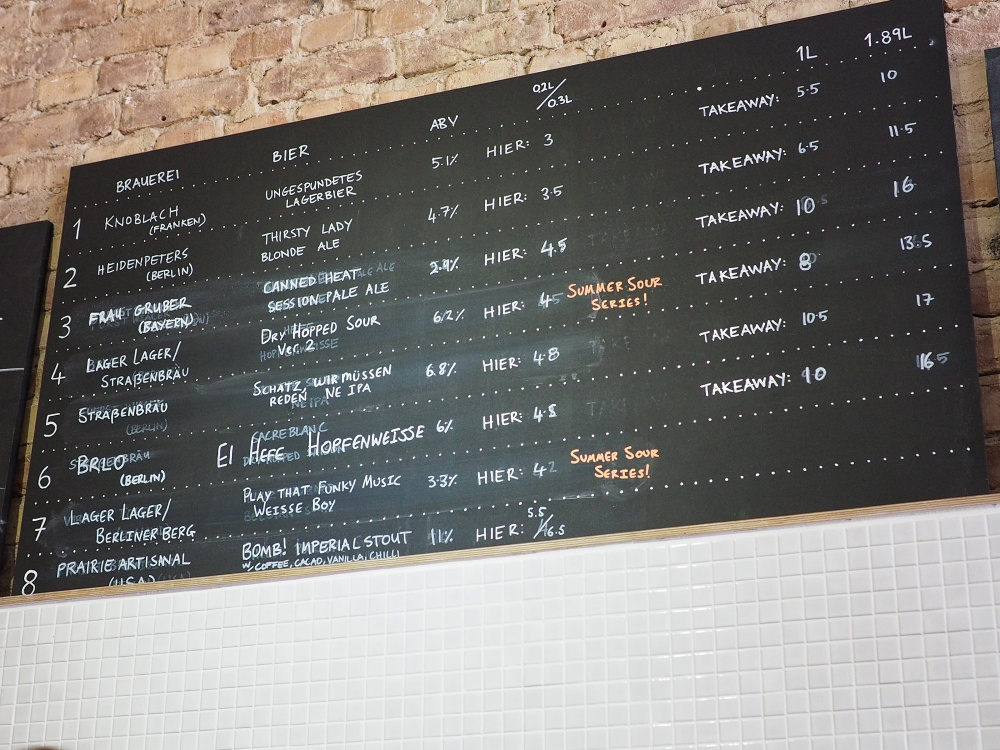 BRAUEREI BIER ABV 0.2L/0.3L 1L 1.89L
1 KNOBLACH UNGESPUNDETES 5.1% HIER: 3 TAKEAWAY: 5.5 10
(FRANKEN) LAGERBIER
2 HEIDENPETERS THIRSTY LADY 4.7% HIER: 3.5 TAKEAWAY: 6.5 11.5
(BERLIN) BLONDE ALE
3 FRAU GRUBER CANNED HEAT 2.9% HIER: 4.5 TAKEAWAY: 10 16
(BAYERN) SESSION PALE ALE
4 LAGER LAGER/ DRY HOPPED SOUR 6.2% HIER: 4 SUMMER SOUR TAKEAWAY: 8 13.5
STRAßENBRÄU VER. 2 SERIES!
5 STRAßENBRÄU SCHATZ, WIR MÜSSEN 6.8% HIER: 4.8 TAKEAWAY: 10.5 17
REDEN, NE IPA
6 BRLO EI HEFE HOPFENWEISSE 6% HIER: 4.5 TAKEAWAY: 10 16.5
(BERLIN)
7 LAGER LAGER/ PLAY THAT FUNKY MUSIC 3.3% HIER: 4.2 SUMMER SOUR
BERLINER BERG WEISSE BOY SERIES!
8 PRAIRIE ARTISANAL BOMB! IMPERIAL STOUT 11% HIER: 5.5/6.5
(USA) W/ COFFEE, CACAO, VANILLA, CHILLI